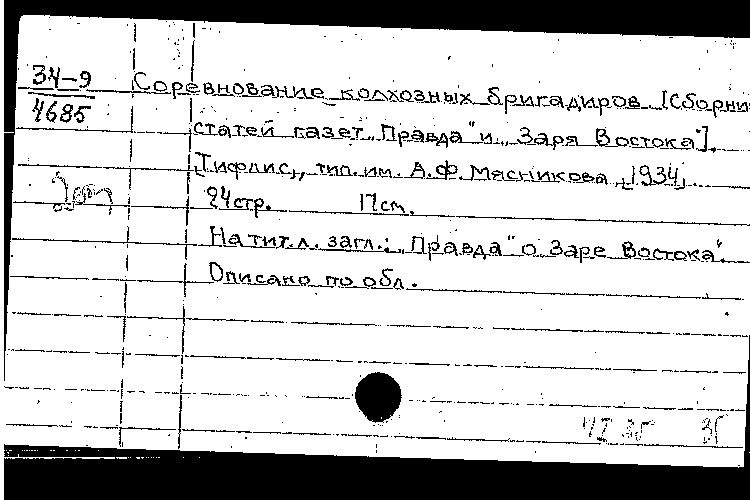 34-9
4685
Соревнование колхозных бригадиров [Сборни
статей газет „Правда" и „Заря Востока"].
[Тифлис], тип. им. А.Ф. Мясникова, [1934].
24 стр. 17 см.
На тит. л. загл.: „Правда" о Заре Востока".
Описано по обл.